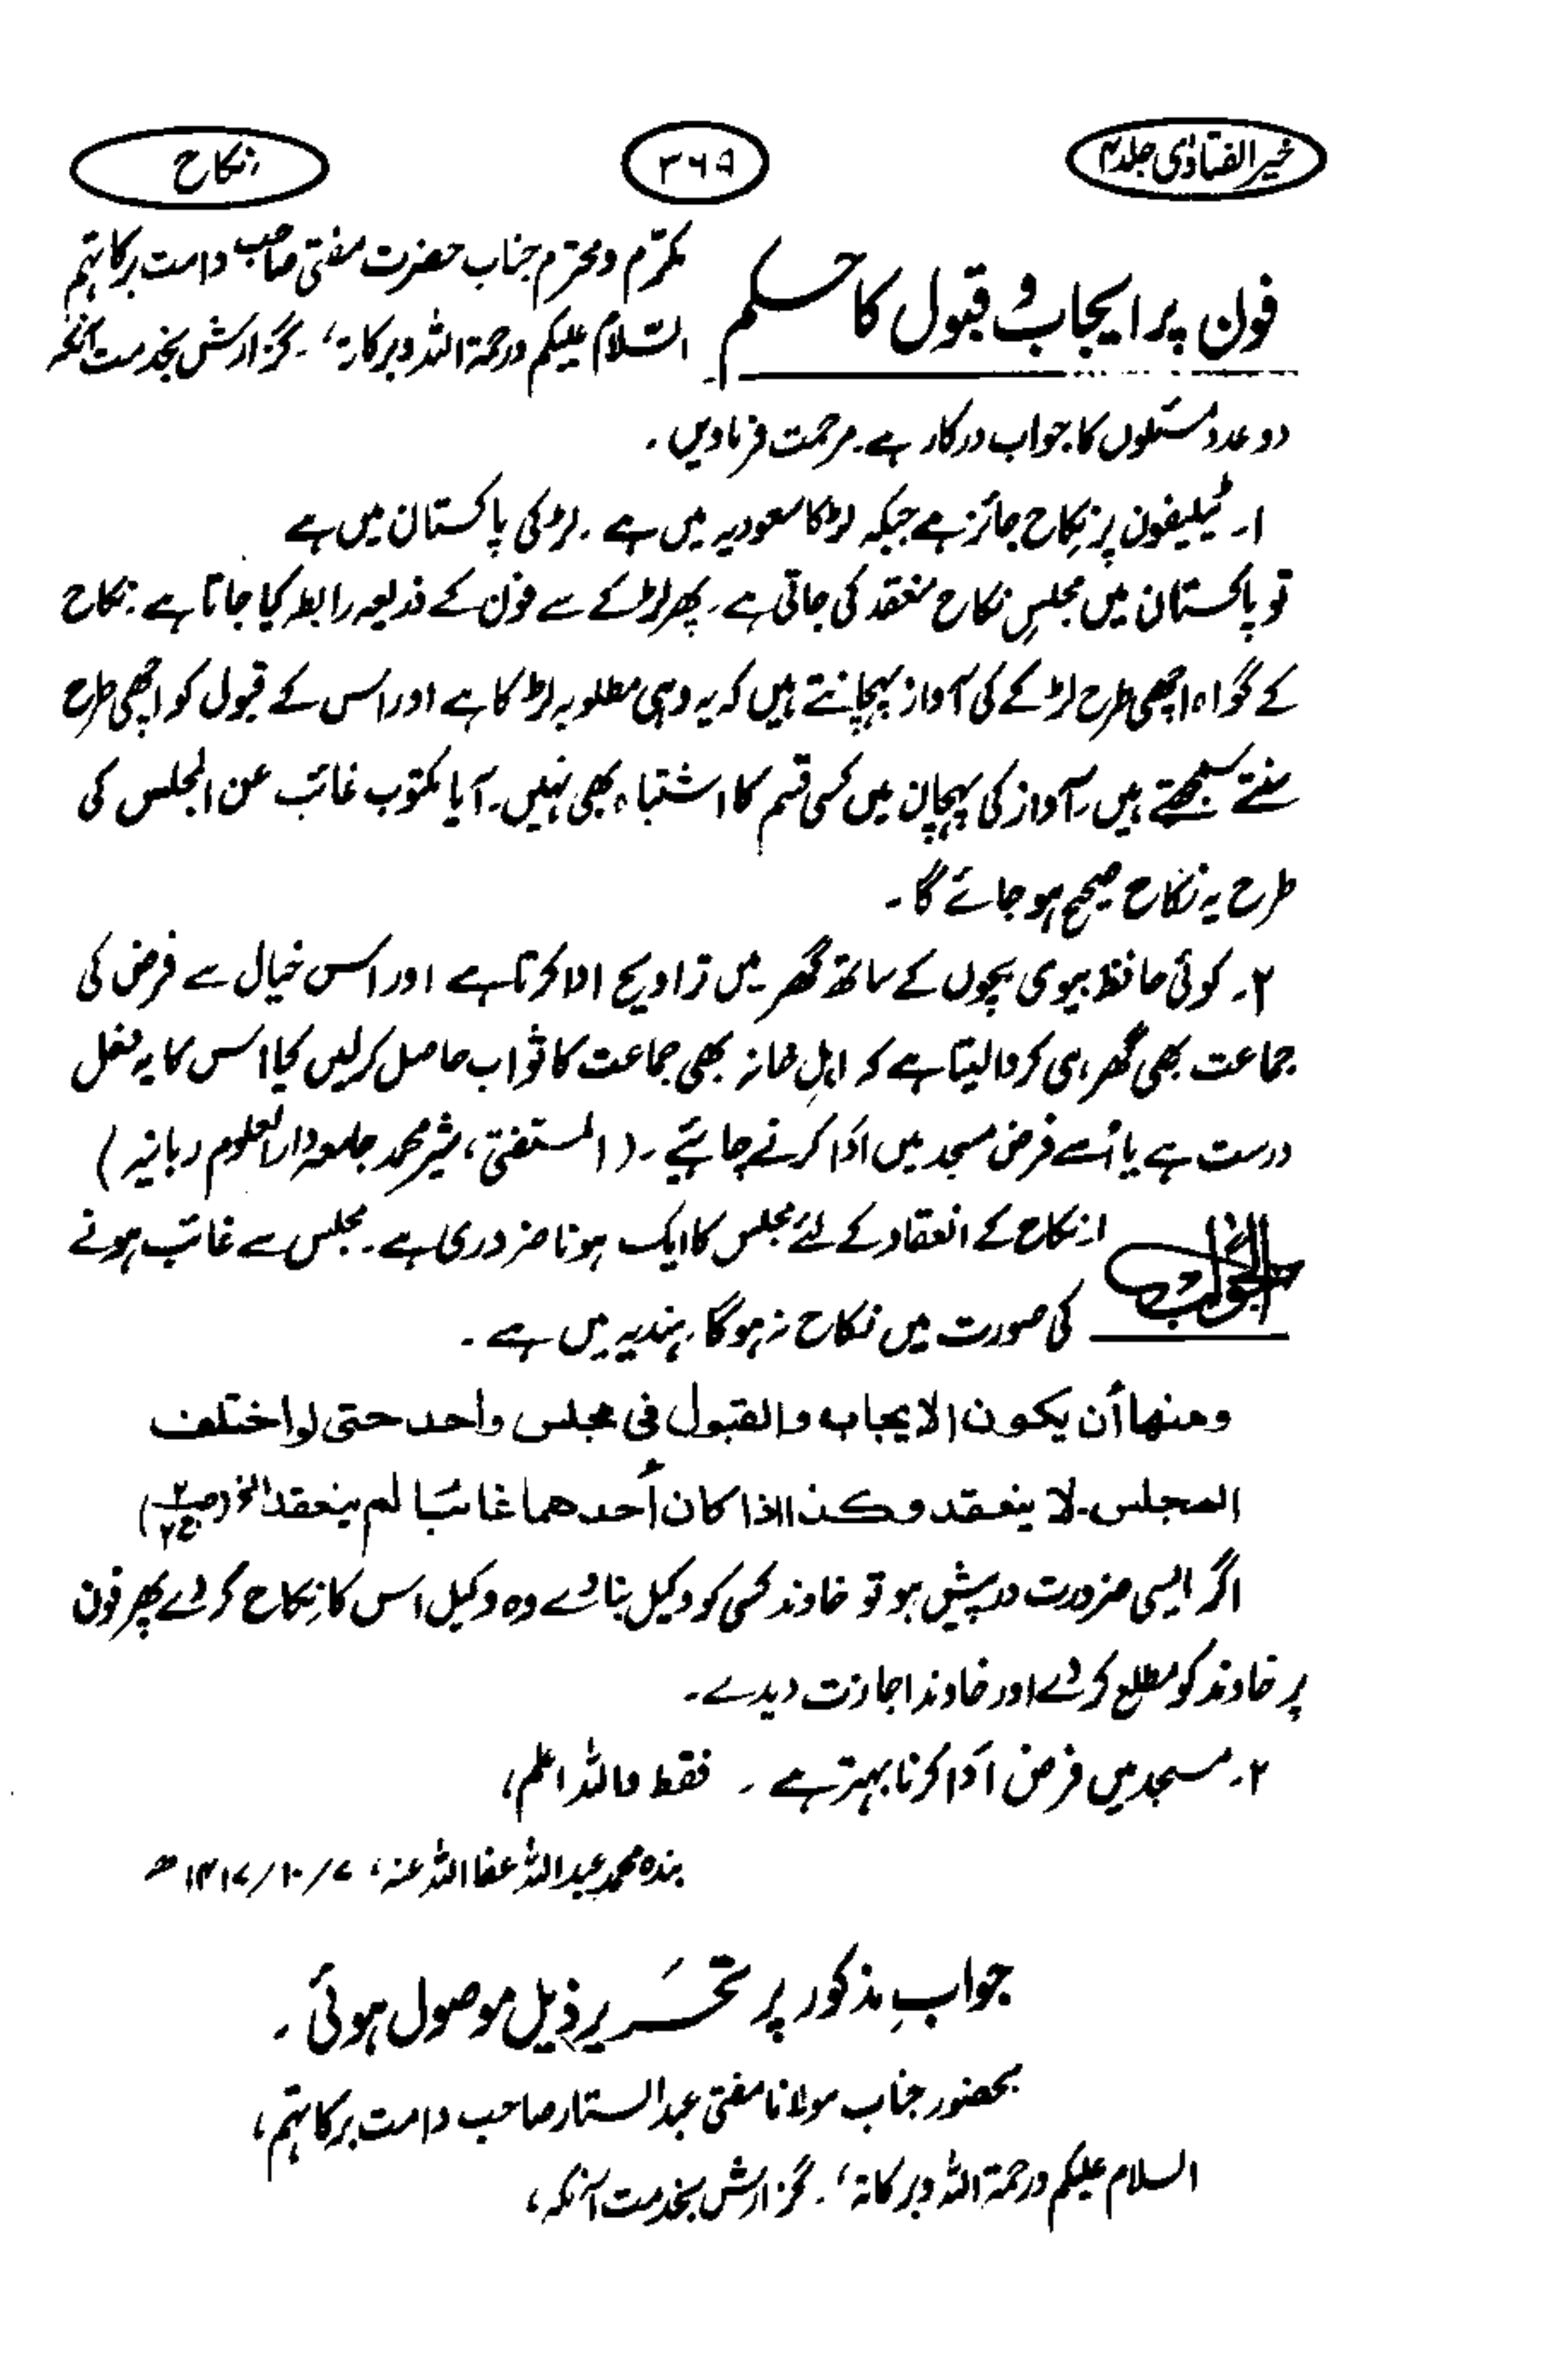 خیر الفتاویٰ جلد ۴
۳۶۹
نکاح
فون پر ایجاب و قبول کا حکم
مکرم و محترم جناب حضرت مفتی صاحب دامت برکاتہم
السلام علیکم ورحمۃ اللہ وبرکاتہ، گزارش بخدمت آنکہ
دو عدد مسئلوں کا جواب درکار ہے۔ مرحمت فرمادیں۔
۱۔ ٹیلیفون پر نکاح جائز ہے جبکہ لڑکا سعودیہ میں ہے۔ لڑکی پاکستان میں ہے
تو پاکستان میں مجلسِ نکاح منعقد کی جاتی ہے۔ پھر لڑکے سے فون کے ذریعہ رابطہ کیا جاتا ہے۔ نکاح
کے گواہ اچھی طرح لڑکے کی آواز پہچانتے ہیں کہ یہ وہی مطلوبہ لڑکا ہے اور اس کے قبول کو اچھی طرح
سنتے سمجھتے ہیں۔ آواز کی پہچان میں کسی قسم کا اشتباہ بھی نہیں۔ آیا مکتوب غائب عن المجلس کی
طرح یہ نکاح صحیح ہو جائے گا۔
۲۔ کوئی حافظ بیوی بچوں کے ساتھ گھر میں تراویح ادا کرتا ہے اور اس خیال سے فرض کی
جماعت بھی گھر ہی کروا لیتا ہے کہ اہلِ خانہ بھی جماعت کا ثواب حاصل کر لیں کیا اس کا یہ فعل
درست ہے یا اُسے فرض مسجد میں ادا کرنے چاہئیے۔ (المستفتی، بشیر محمد جامعہ دارالعلوم ربانیہ)
الجواب
۱۔ نکاح کے انعقاد کے لئے مجلس کا ایک ہونا ضروری ہے۔ مجلس سے غائب ہونے
کی صورت میں نکاح نہ ہوگا۔ ہندیہ میں ہے۔
ومنها أن يكون الايجاب والقبول فى مجلس واحد حتى لو اختلف
المجلس لا ينعقد وكذا اذا كان أحدهما غائبا لم ينعقد الخ (ص۲ ج۲)
اگر ایسی ضرورت درپیش ہو تو خاوند کسی کو وکیل بنا دے وہ وکیل اس کا نکاح کر دے پھر فون
پر خاوند کو مطلع کر دے اور خاوند اجازت دیدے۔
۲۔ مسجد میں فرض ادا کرنا بہتر ہے۔ فقط واللہ اعلم،
بندہ محمد عبداللہ عفا اللہ عنہ، ۷/۱۰/۱۴۱۷ھ
جوابِ مذکور پر تحریر ذیل موصول ہوئی۔
بحضور جناب مولانا مفتی عبدالستار صاحب دامت برکاتہم،
السلام علیکم ورحمۃ اللہ وبرکاتہ، گزارش بخدمت آنکہ،